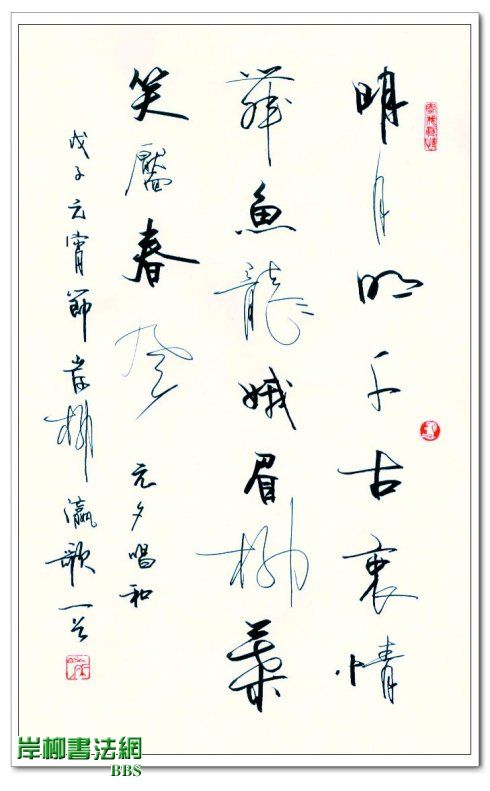 明月照千古衷情
舞魚龍娥眉柳葉
笑靨春風 元夕唱和
戊子元宵節岸柳瀛歌一
岸柳書法網
BBS